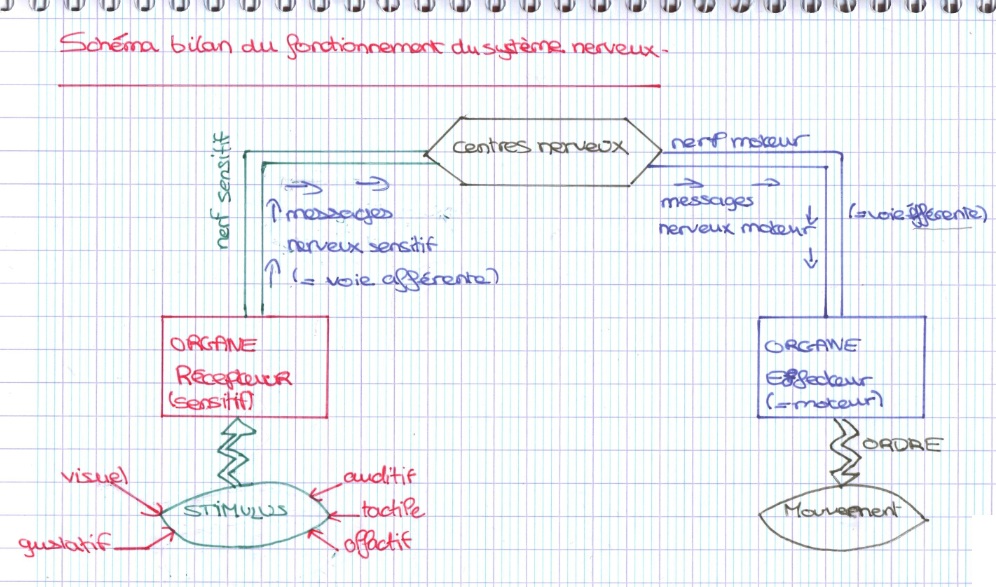 Schéma bilan du fonctionnement du système nerveux.
centres nerveux
nerf sensitif
nerf moteur
messages
nerveux sensitif
(= voie afférente)
messages
nerveux moteur
(= voie éfférente)
ORGANE
Récepteur
(sensitif)
ORGANE
Effecteur
(= moteur)
ORDRE
visuel
auditif
STIMULUS
tactile
gustatif
olfactif
Mouvement